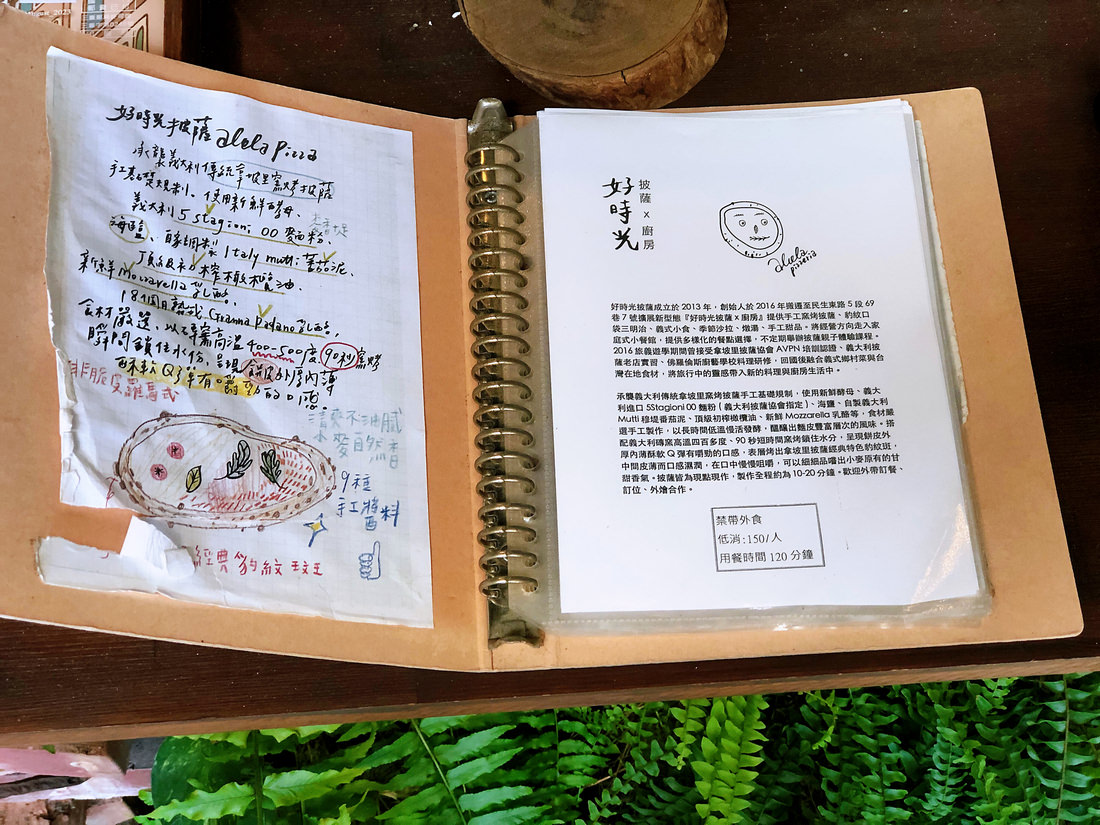 好時光披薩 alela pizza
承襲義大利傳統拿坡里窯烤披薩
手工基礎規制、使用新鮮酵母、
義大利 5 stagioni 00 麵粉、
海鹽、自家調製 Italy mutti 蕃茄泥、
頂級初榨橄欖油、
新鮮 Mozzarella 乳酪、
18個月熟成 Granna Padano 乳酪,
食材嚴選,以磚窯高溫400-500度,90秒窯烤
瞬間鎖住水份,呈現餅皮外厚內薄
酥軟Q彈有嚼勁的口感
非脆皮羅馬式
清爽不油膩
小麥自然香
9種
手工醬料
經典豹紋
好時光
披薩 x 廚房
alela
pizzeria
好時光披薩成立於 2013 年,創始人於 2016 年搬遷至民生東路 5 段 69
巷 7 號擴展新型態『好時光披薩 x 廚房』提供手工窯烤披薩、豹紋口
袋三明治、義式小食、季節沙拉、燉湯、手工甜品。將經營方向走入家
庭式小餐館,提供多樣化的餐點選擇,不定期舉辦披薩親子體驗課程。
2016 旅義遊學期間曾接受拿坡里披薩協會 AVPN 培訓認證、義大利披
薩老店實習、佛羅倫斯廚藝學校料理研修,回國後融合義式鄉村菜與台
灣在地食材,將旅行中的靈感帶入新的料理與廚房生活中。
承襲義大利傳統拿坡里窯烤披薩手工基礎規制,使用新鮮酵母、義大
利進口 5Stagioni 00 麵粉 ( 義大利披薩協會指定 )、海鹽、自製義大利
Mutti 穆堤番茄泥、頂級初榨橄欖油、新鮮 Mozzarella 乳酪等,食材嚴
選手工製作,以長時間低溫慢活發酵,醞釀出麵皮豐富層次的風味。搭
配義大利磚窯高溫四百多度、90 秒短時間窯烤鎖住水分,呈現餅皮外
厚內薄酥軟 Q 彈有嚼勁的口感,表層烤出拿坡里披薩經典特色豹紋斑,
中間皮薄而口感濕潤,在口中慢慢咀嚼,可以細細品嚐出小麥原有的甘
甜香氣。披薩皆為現點現作,製作全程約為 10-20 分鐘。歡迎外帶訂餐、
訂位、外燴合作。
禁帶外食
低消:150/人
用餐時間 120 分鐘